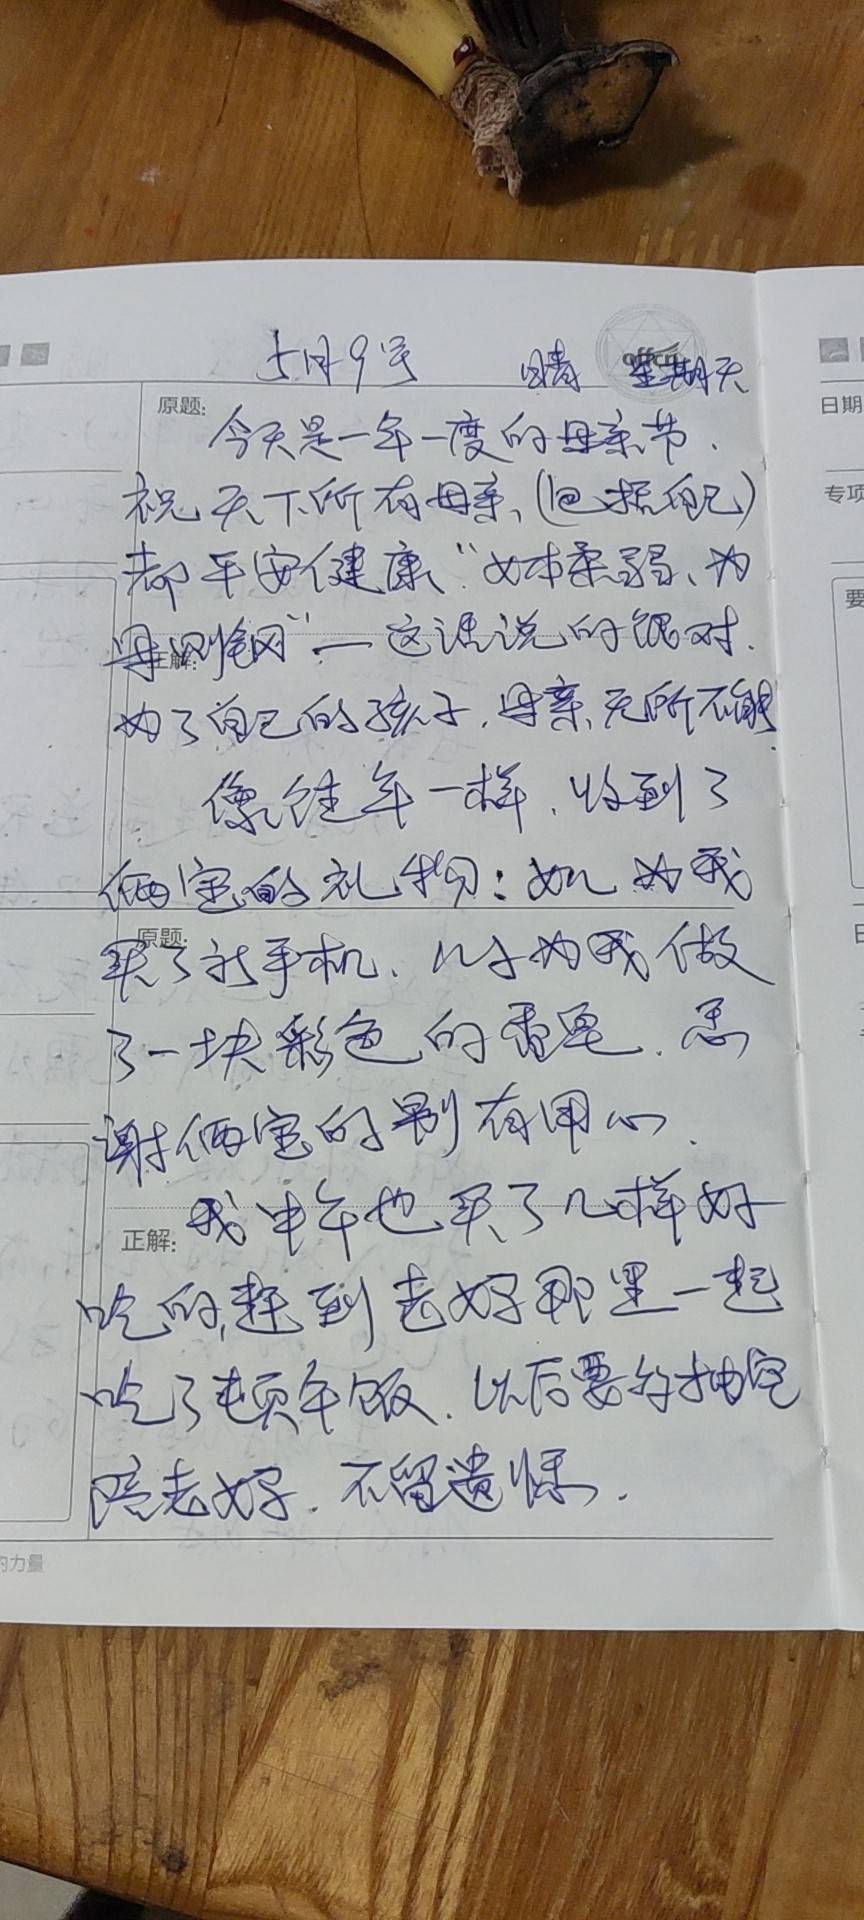 offcn
5月9号 晴 星期天
日期
原题:
今天是一年一度的母亲节.
祝天下所有母亲、(包括自己)
专项
都平安健康、“女本柔弱、为
要
母则刚”—这话说的很对.
正解:
为了自己的孩子.母亲、无所不能
像往年一样.收到了
俩宝的礼物:女儿为我
原题:
买了新手机、儿子为我做
了一块彩色的香皂.感
谢俩宝的别有用心.
我中午也买了几样好
正解:
吃的,赶到老妈那里一起
吃了顿午饭.以后要多抽空
陪老妈.不留遗憾.
的力量